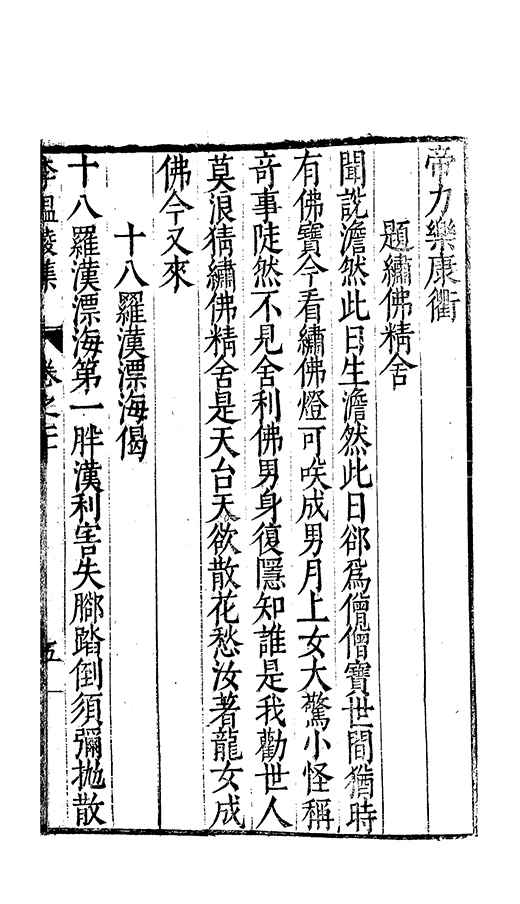 帝力樂康衢
題繡佛精舍
聞說澹然此日生澹然此日郤爲僧僧寶世間猶時
有佛寶今看繡佛燈可咲成男月上女大驚小怪稱
奇事陡然不見舍利佛男身復隱知誰是我勸世人
莫浪猜繡佛精舍是天台天欲散花愁汝著龍女成
佛今又來
十八羅漢漂海偈
十八羅漢漂海第一胖漢利害失腳踏倒須彌拋散
李溫陵集
卷之二
五